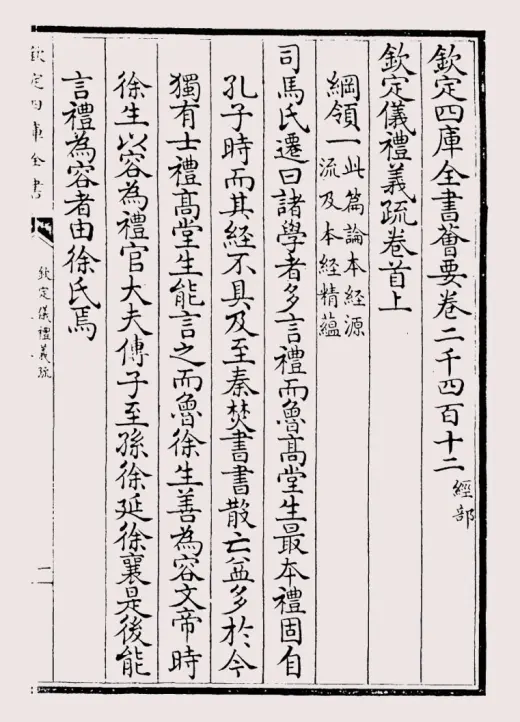 欽定四庫全書薈要卷二千四百十二
經部
欽定儀禮義疏卷首上
綱領一
此篇論本經源
流及本經精蘊
司馬氏遷曰諸學者多言禮而魯髙堂生最本禮固自
孔子時而其經不具及至秦焚書書散亡益多於今
獨有士禮髙堂生能言之而魯徐生善為容文帝時
徐生以容為禮官大夫傳子至孫徐延徐襄是後能
言禮為容者由徐氏焉
欽定四庫全書
欽定儀禮義疏
一